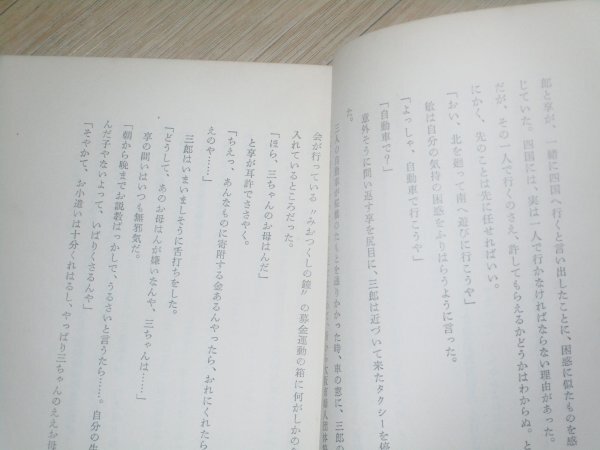 郎と享が、一緒に四国へ行くと言い出したことに、困惑に似たものを感
じていた。四国には、実は一人で行かなければならない理由があった。
だが、その一人で行くのさえ、許してもらえるかどうかはわからぬ。と
にかく、先のことは先に任せればいい。
「おい、北を廻って南へ遊びに行こうや」
敏は自分の気持の困惑をふりはらうように言った。
「よっしゃ、自動車で行こうや」
「自動車で？」
意外そうに問い返す享を尻目に、三郎は近づいて来たタクシーを停
た。
三人の自動車が
を通りかかった時、車の窓に、三郎の
会が行っている〝みおつくしの鐘〟の募金運動の箱に何がしかの
入れているところだった。
「ほら、三ちゃんのお母はんだ」
と享が耳許でささやく。
「ちえっ、あんなものに寄附する金あるんやったら、おれにくれたら
えのや……」
三郎はいまいましそうに舌打ちをした。
「どうして、あのお母はんが嫌いなんや、三ちゃんは……」
享の問いはいつも無邪気だ。
「朝から晩までお説教ばっかしで、うるさいと言うたら……。自分の生
んだ子やないよって、いばりくさるんや」
「そやかて、お小遣いは十分くれはるし、やっぱり三ちゃんのええお母